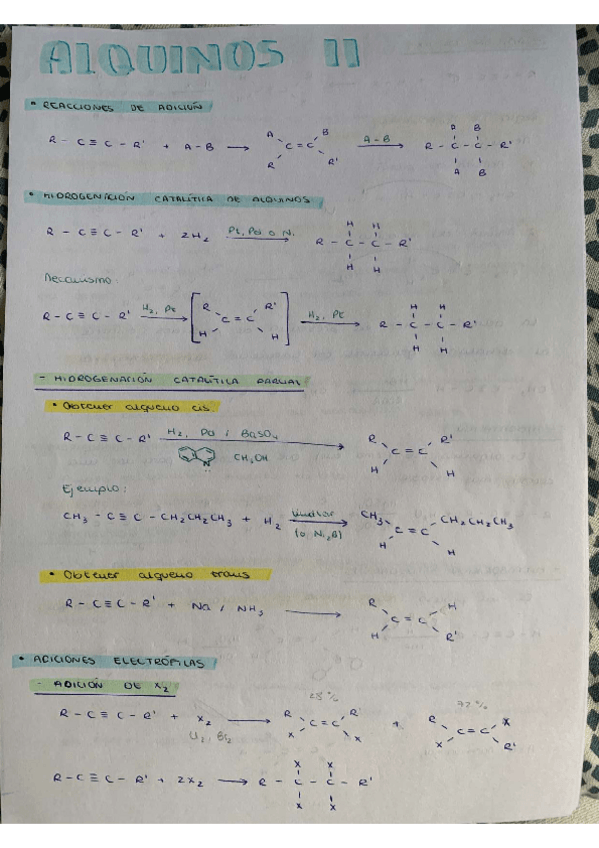 ALQUINOS II
• REACCIONES DE ADICIÓN
R - C≡C - R' + A-B → A B C=C R R' A-B → R - C - C - R' A B A B
• HIDROGENACIÓN CATALÍTICA DE ALQUINOS
R - C≡C - R' + 2H2 Pt, Pd o Ni → R - C - C - R' H H H H
Mecanismo:
R - C≡C - R' H2, Pt → [ R R' C=C H H ] H2, Pt → R - C - C - R' H H H H
- HIDROGENACIÓN CATALÍTICA PARCIAL
• Obtener alqueno cis.
R - C≡C - R' H2, Pd / BaSO4 → R R' C=C H H
N CH3OH
Ejemplo:
CH3 - C≡C - CH2CH2CH3 + H2 Lindlar (o Ni2B) → CH3 CH2CH2CH3 C=C H H
• Obtener alqueno trans
R - C≡C - R' + Na / NH3 → R H C=C H R'
• ADICIONES ELECTRÓFILAS
- ADICIÓN DE X2
R - C≡C - R' + X2 → 28% R R' C=C X X + 72% R X C=C X R'
Cl2, Br2
R - C≡C - R' + 2X2 → R - C - C - R' X X X X